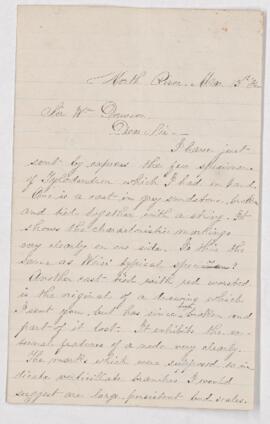 North River, Mar 3rd
Sir Wm Dawson
Dear Sir -
I have just
sent by express the few specimens
of Tylodendron which I had in hand.
One is a cast in grey sandstone, broken
and tied together with a string. It
shows the characteristic markings
very clearly on one side. Is this the
same as Weiss' typical specimen?
Another cast tied with red worsted
is the original of a drawing which
I sent you but has since broken and
part of it lost. It exhibits the ex-
ternal features of a node very clearly.
The marks which were supposed to in-
dicate verticillate branches I would
suggest are large persistent bud scales.